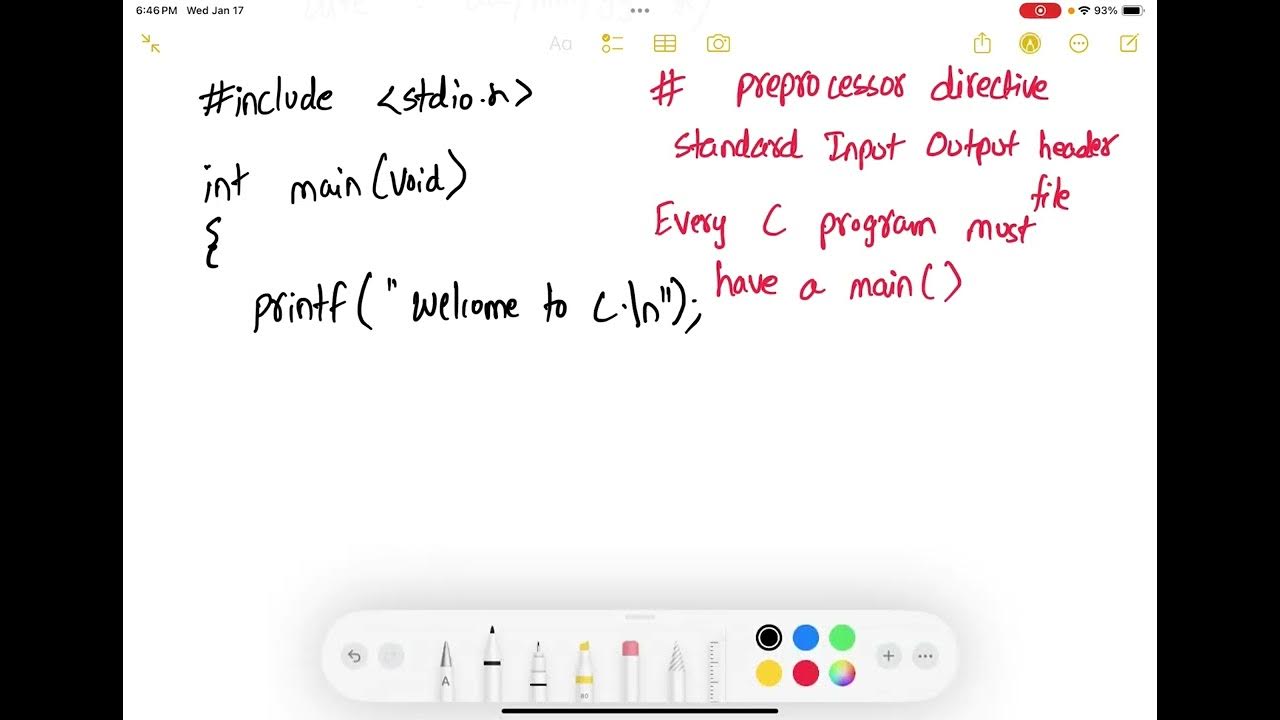 6:46 PM Wed Jan 17
93%
Aa
#include <stdio.h>
# preprocessor directive
Standard Input Output header
file
int main(void)
Every C program must
have a main()
{
printf(" Welcome to C.\n");
A
80